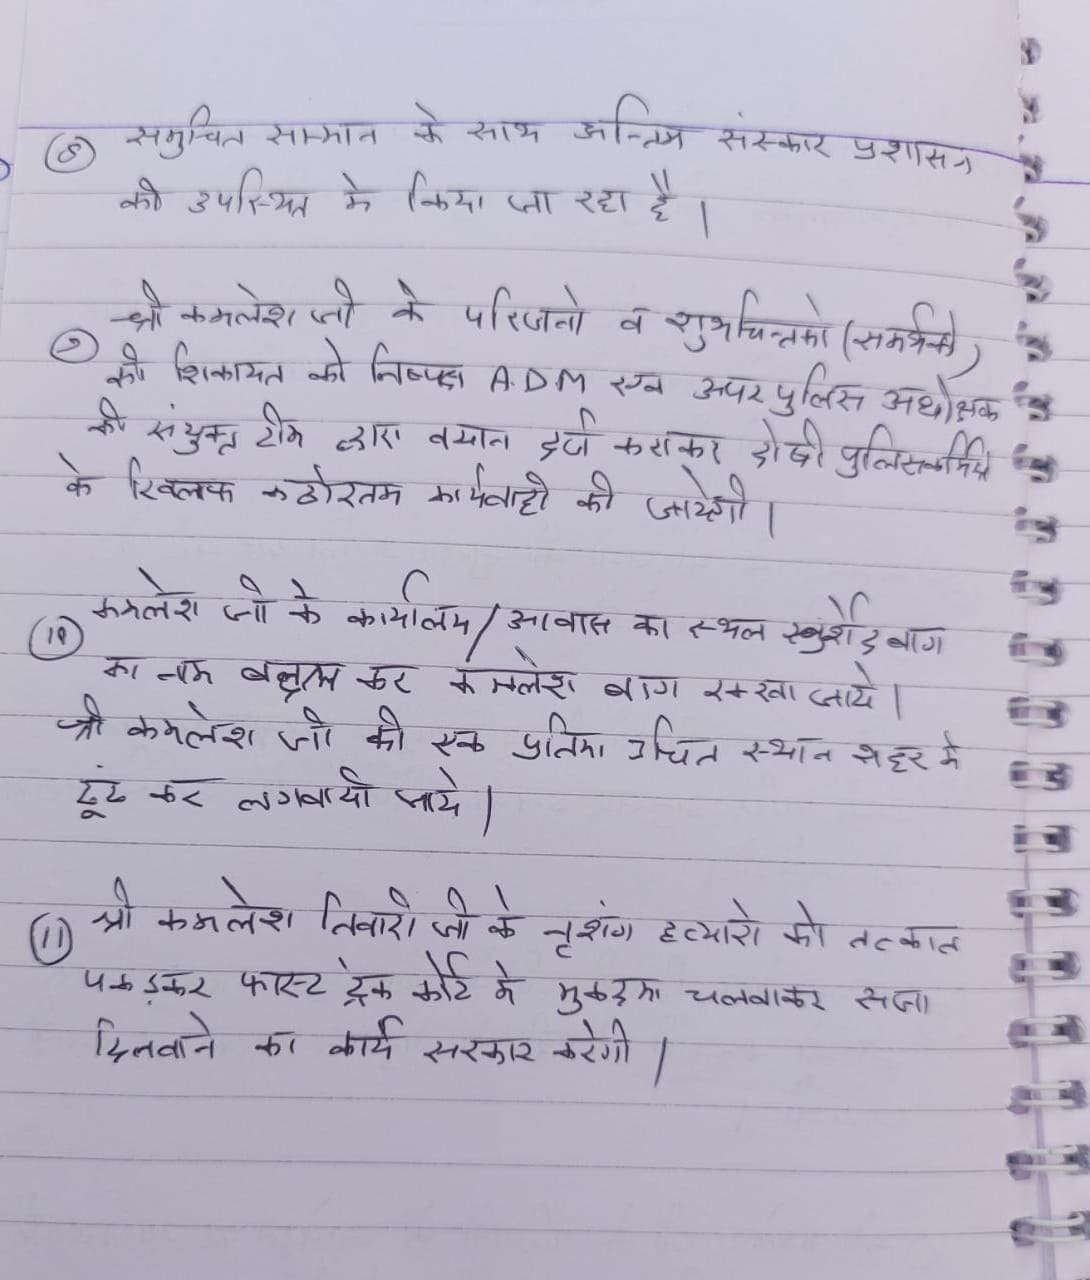 ⑧ समुचित सम्मान के साथ अन्तिम संस्कार प्रशासन
की उपस्थित मे किया जा रहा है।
⑨ श्री कमलेश जी के परिजनो व शुभचिन्तको (समर्थको)
की शिकायत को निष्पक्ष A.D.M एवं अपर पुलिस अधीक्षक
की संयुक्त टीम द्वारा बयान दर्ज कराकर दोषी पुलिसकर्मियो
के खिलाफ कठोरतम कार्यवाही की जायेगी।
⑩ कमलेश जी के कार्यालय/आवास का स्थल खुर्शेद बाग
का नाम बदल कर कमलेश बाग रक्खा जाये।
श्री कमलेश जी की एक प्रतिमा उचित स्थान शहर मे
ढूंढ कर लगवायी जाये।
⑪ श्री कमलेश तिवारी जी के नृशंग हत्यारो को तत्काल
पकड़कर फास्ट ट्रेक कोर्ट मे मुकदमा चलवाकर सजा
दिलवाने का कार्य सरकार करेगी।